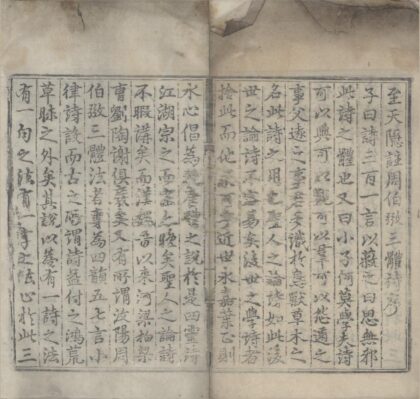 至天隱註周伯弜三體詩序
子曰詩三百一言以蔽之曰思無邪
此詩之體也又曰小子何莫學夫詩
可以興可以觀可以羣可以怨邇之
事父遠之事君多識於鳥獸草木之
名此詩之用也聖人之論詩如此後
世之論詩不容易矣後世之學詩者
捨此而他求可乎近世永嘉葉正則
水心倡為晚唐體之說於是四靈詩
江湖宗之而宋亦晚矣聖人之論詩
不暇講矣而漢魏晉以來河梁柏梁
曹劉陶謝俱廢矣又有所謂汶陽周
伯弜三體法者專為四韻五七言小
律詩設而古之所謂詩益付之鴻荒
草昧之外矣其說以為有一詩之法
有一句之法有一字之法止於此三